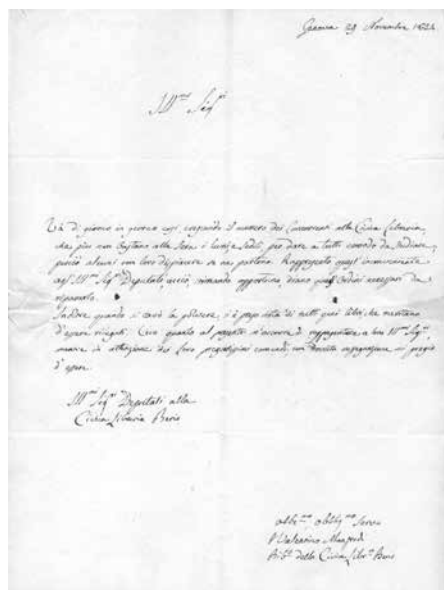 Genova 29 Novembre 1824
Ill.mi Sig.ri
Và di giorno in giorno così crescendo il numero dei Concorrenti alla Civica Libreria,
che più non bastano alla Sera i lumi, e Sedili, per dare a tutti comodo da Studiare,
perciò alcuni con loro dispiacere se ne partono. Rappresento quest'inconveniente
agl'Ill.mi Sig.ri Deputati, acciò, stimando opportuno, diano quegl'Ordini necessari da
ripararlo.
quando si cavò la polvere, si è preso nota di tutti quei libri, che meritano
d'essere rilegati. Ecco quanto al presente m'occorre di rappresentare a loro Ill.mi Sig.ri
mentre in attenzione dei loro pregiatissimi comandi, con mi pregio
d'essere.
Ill.mi Sig.ri Deputati alla
Civica Libreria Berio
Obbl.mo Servo
Bib.o della Civica Libr.a Berio